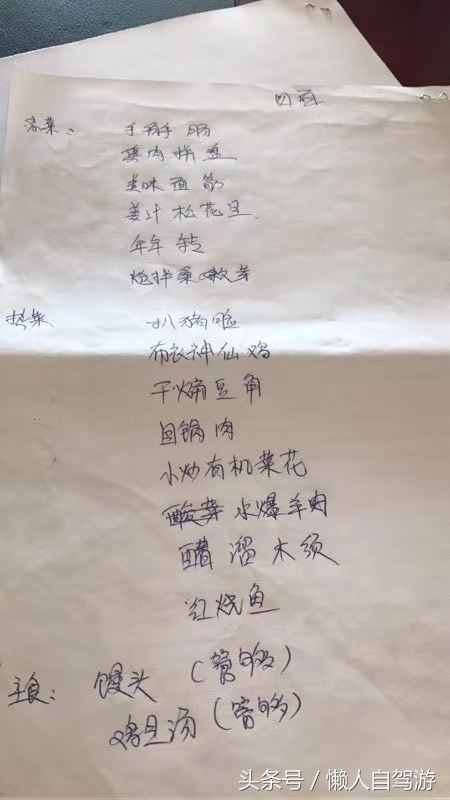 四百
凉菜:
手掰肠
酱肉拼盘
美味面筋
姜汁松花旦
年年有
炝拌桑嫩芽
热菜
扒猪脸
布衣神仙鸡
干煸豆角
回锅肉
小炒有机菜花
水爆羊肉
醋溜木须
红烧鱼
主食: 馒头 (管够)
鸡旦汤 (管够)
头条号 / 懒人自驾游